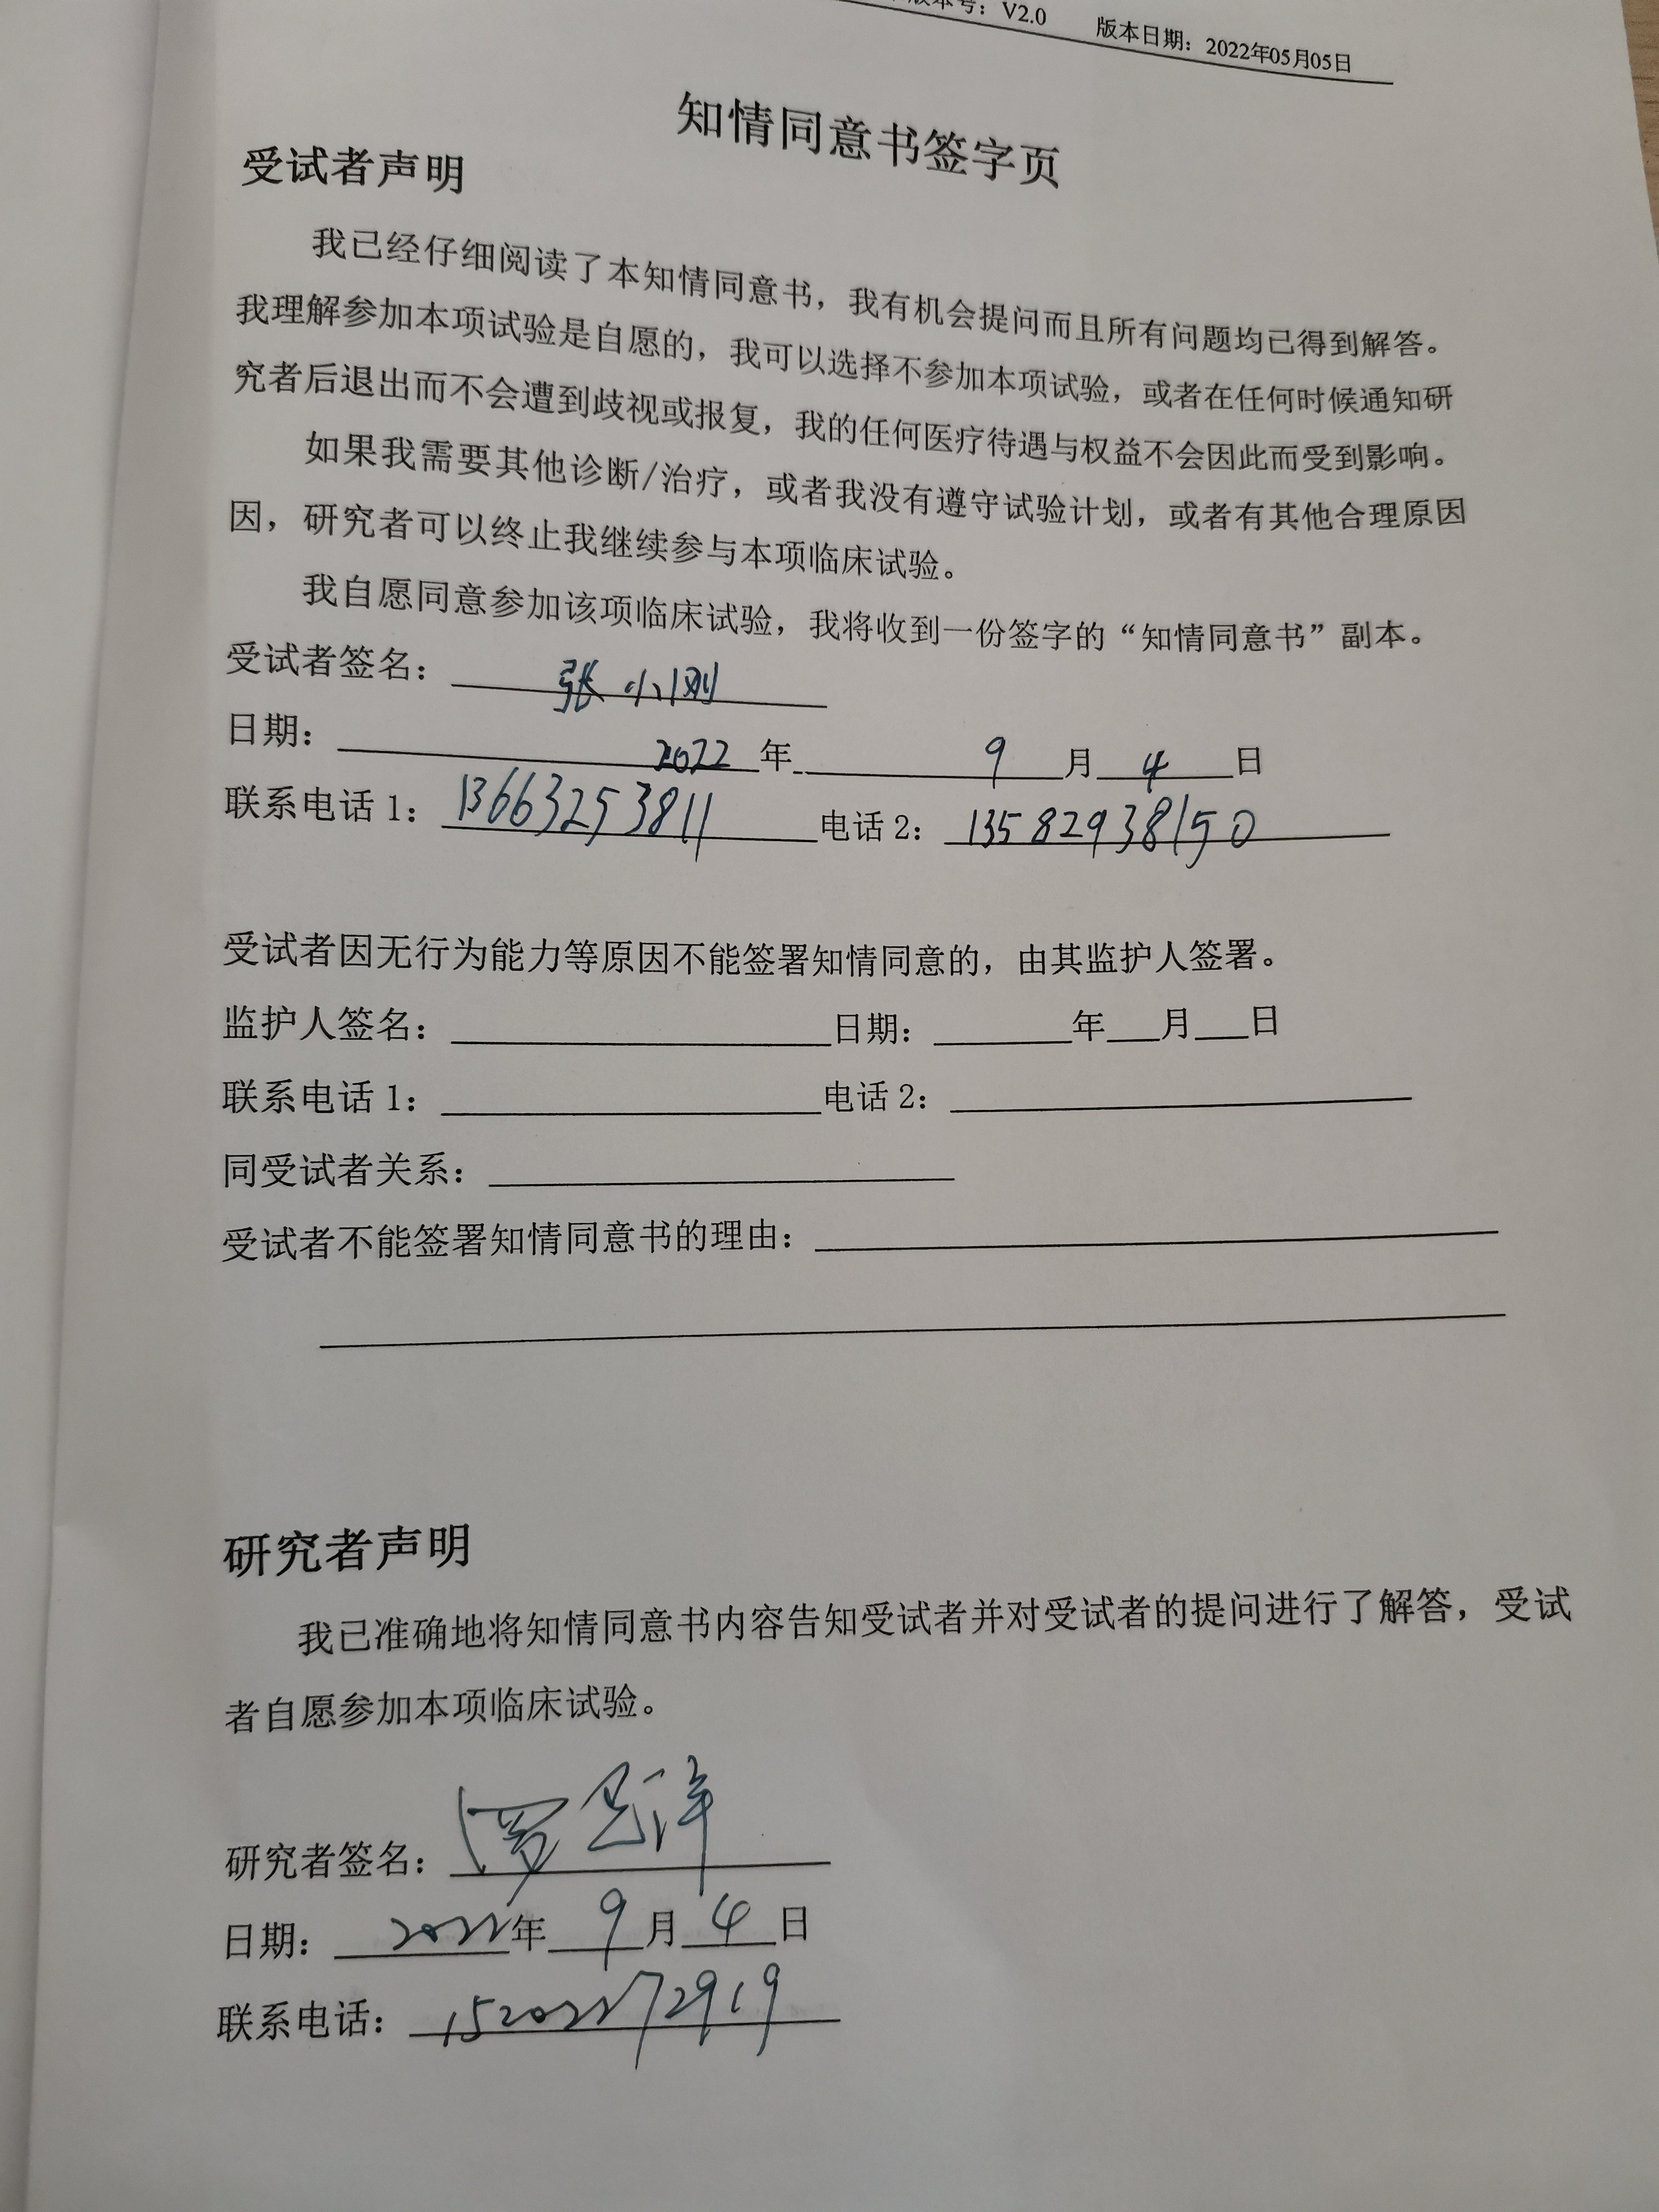 版本号：V2.0 版本日期：2022年05月05日
知情同意书签字页
受试者声明
我已经仔细阅读了本知情同意书，我有机会提问而且所有问题均已得到解答。
我理解参加本项试验是自愿的，我可以选择不参加本项试验，或者在任何时候通知研
究者后退出而不会遭到歧视或报复，我的任何医疗待遇与权益不会因此而受到影响。
如果我需要其他诊断/治疗，或者我没有遵守试验计划，或者有其他合理原因
因，研究者可以终止我继续参与本项临床试验。
我自愿同意参加该项临床试验，我将收到一份签字的“知情同意书”副本。
受试者签名：张小刚
日期：2022年9月4日
联系电话1：13663253811 电话2：13582938150
受试者因无行为能力等原因不能签署知情同意的，由其监护人签署。
监护人签名：日期：年月日
联系电话1：电话2：
同受试者关系：
受试者不能签署知情同意书的理由：
研究者声明
我已准确地将知情同意书内容告知受试者并对受试者的提问进行了解答，受试
者自愿参加本项临床试验。
研究者签名：
日期：2022年9月4日
联系电话：15202272919